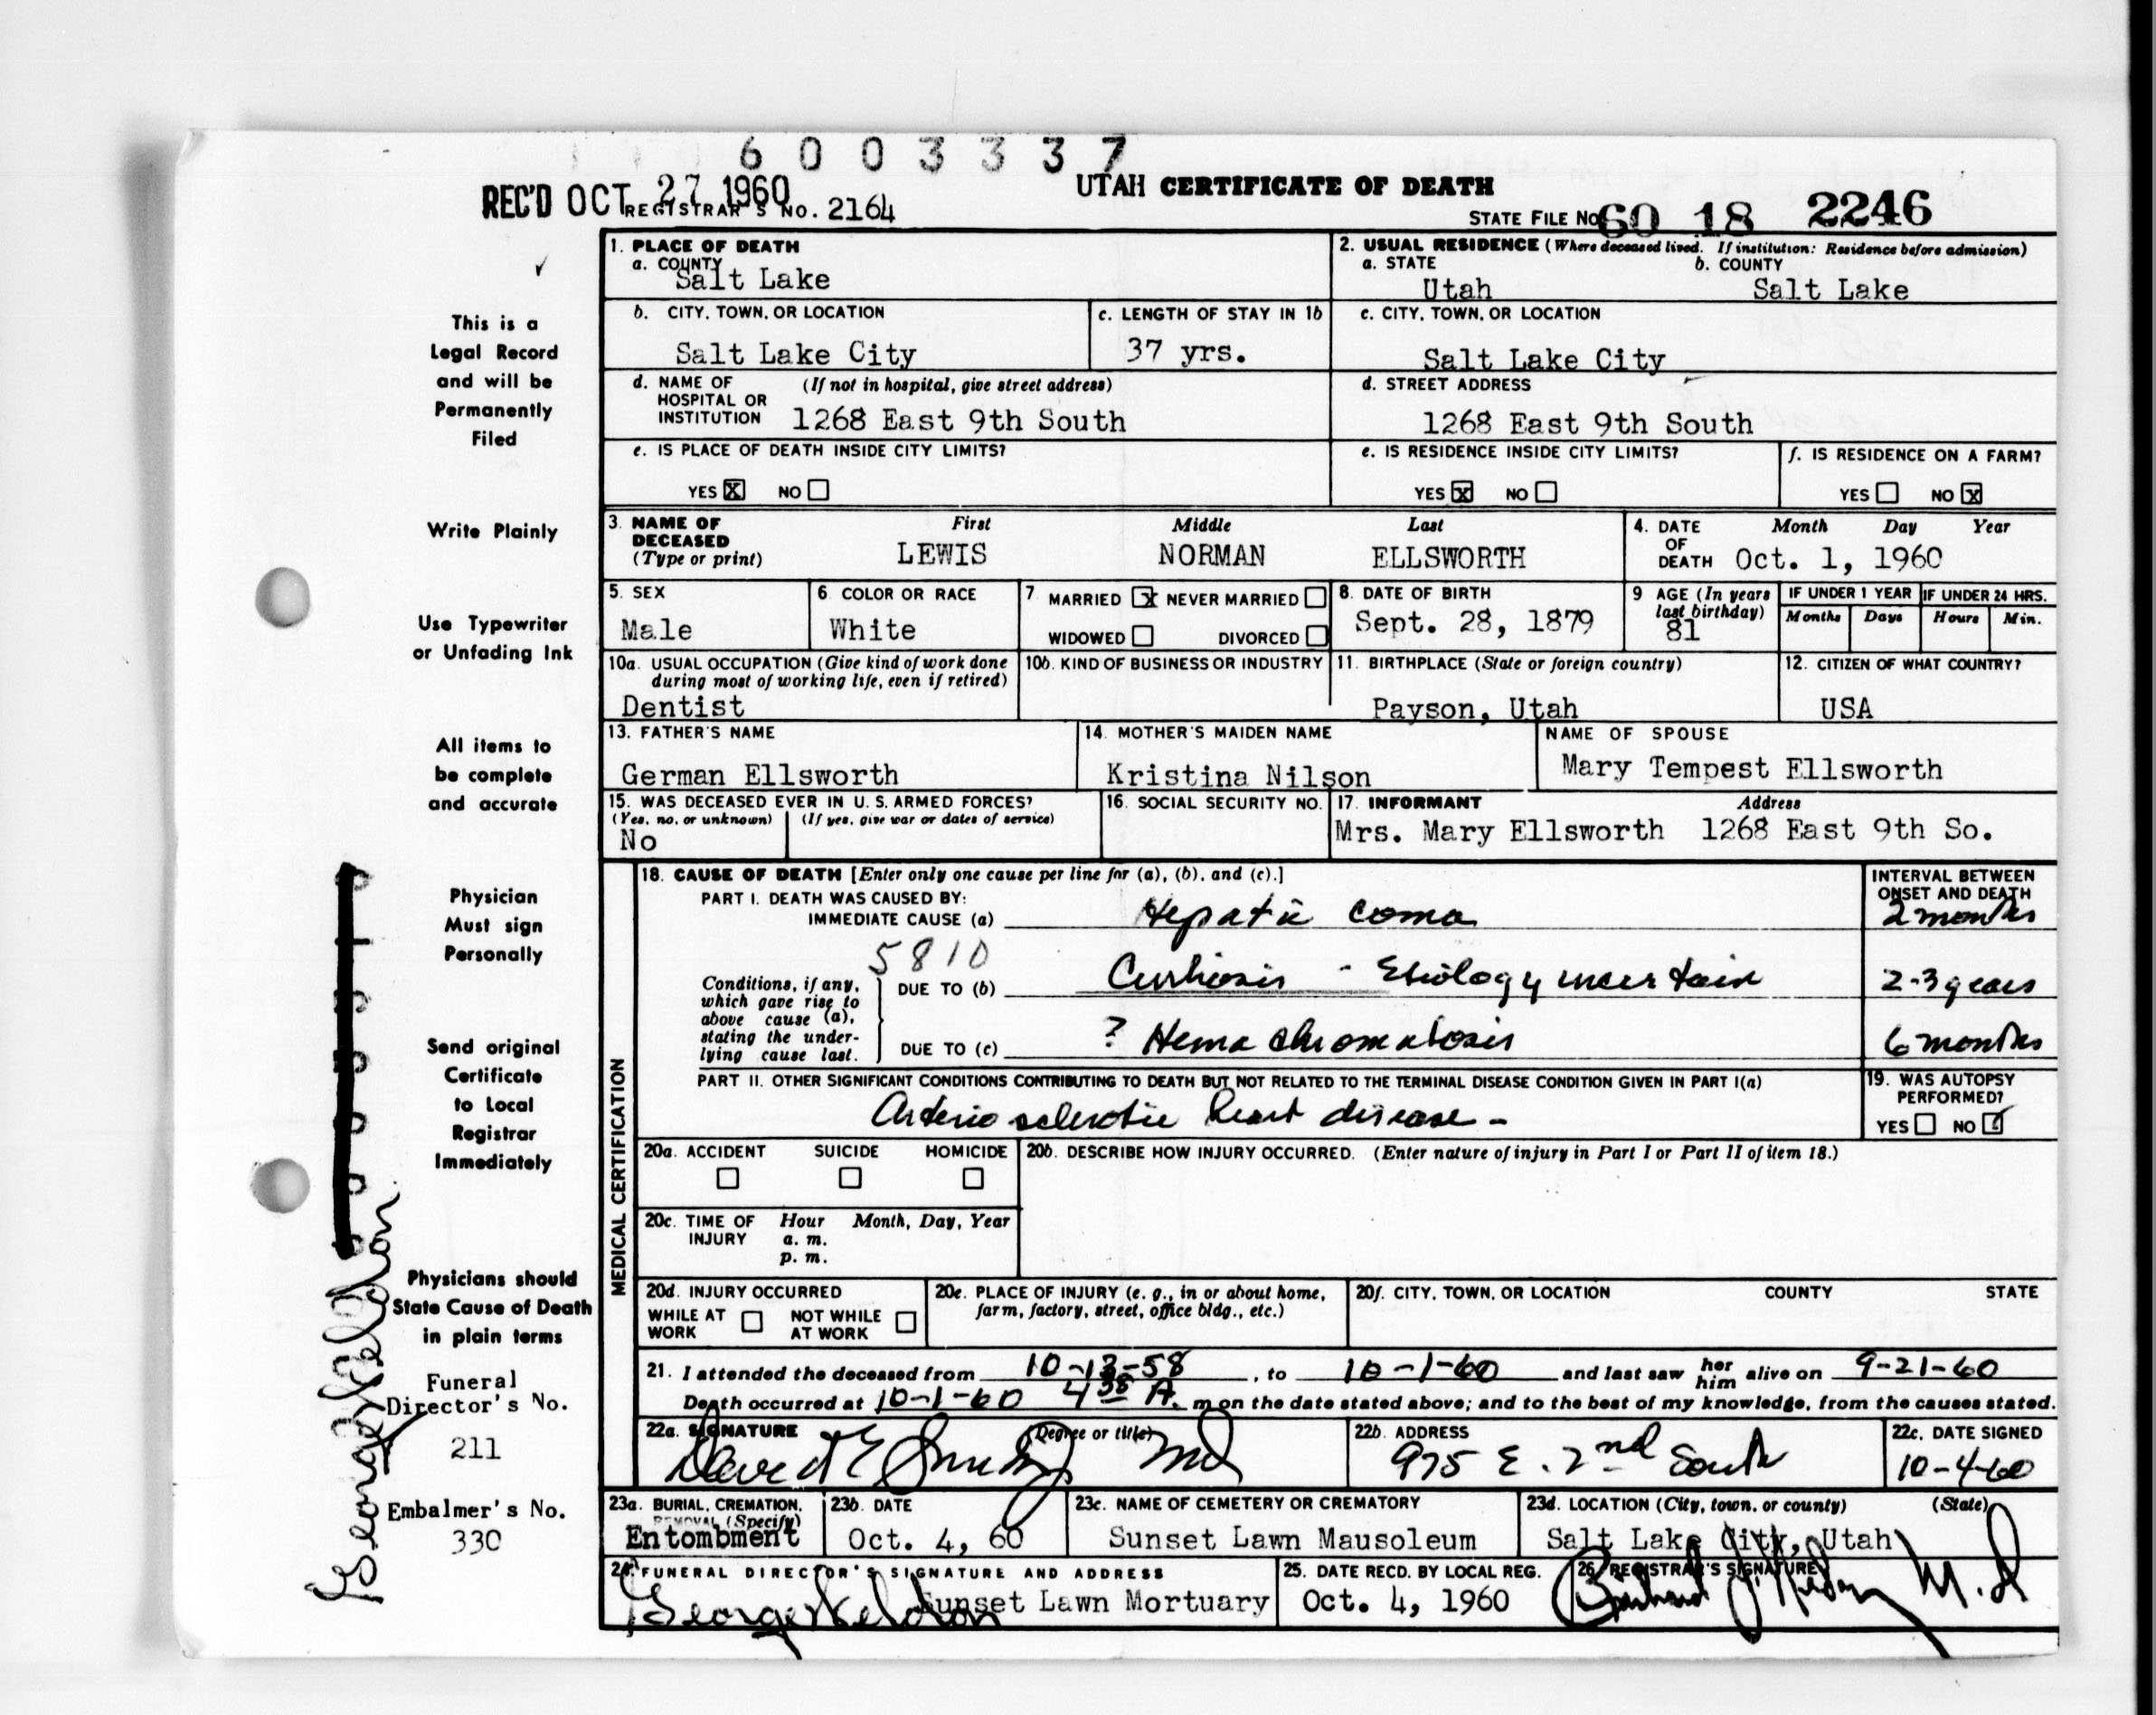 6003337
REC'D OCT 27 1960
REGISTRAR'S NO. 2164
UTAH CERTIFICATE OF DEATH
STATE FILE NO. 60 18 2246
This is a
Legal Record
and will be
Permanently
Filed
Write Plainly
Use Typewriter
or Unfading Ink
All items to
be complete
and accurate
Physician
Must sign
Personally
Send original
Certificate
to Local
Registrar
Immediately
Physicians should
State Cause of Death
in plain terms
Funeral
Director's No.
211
Embalmer's No.
330
1. PLACE OF DEATH
a. COUNTY
Salt Lake
2. USUAL RESIDENCE (Where deceased lived. If institution: Residence before admission)
a. STATE b. COUNTY
Utah Salt Lake
b. CITY, TOWN, OR LOCATION
Salt Lake City
c. LENGTH OF STAY IN 1b
37 yrs.
c. CITY, TOWN, OR LOCATION
Salt Lake City
d. NAME OF (If not in hospital, give street address)
HOSPITAL OR
INSTITUTION 1268 East 9th South
d. STREET ADDRESS
1268 East 9th South
e. IS PLACE OF DEATH INSIDE CITY LIMITS?
YES X NO
e. IS RESIDENCE INSIDE CITY LIMITS?
YES X NO
f. IS RESIDENCE ON A FARM?
YES NO X
3. NAME OF DECEASED (Type or print)
First Middle Last
LEWIS NORMAN ELLSWORTH
4. DATE OF DEATH Month Day Year
Oct. 1, 1960
5. SEX
Male
6 COLOR OR RACE
White
7 MARRIED X NEVER MARRIED
WIDOWED DIVORCED
8. DATE OF BIRTH
Sept. 28, 1879
9 AGE (In years
last birthday)
81
IF UNDER 1 YEAR IF UNDER 24 HRS.
Months Days Hours Min.
10a. USUAL OCCUPATION (Give kind of work done
during most of working life, even if retired)
Dentist
10b. KIND OF BUSINESS OR INDUSTRY
11. BIRTHPLACE (State or foreign country)
Payson, Utah
12. CITIZEN OF WHAT COUNTRY?
USA
13. FATHER'S NAME
German Ellsworth
14. MOTHER'S MAIDEN NAME
Kristina Nilson
NAME OF SPOUSE
Mary Tempest Ellsworth
15. WAS DECEASED EVER IN U.S. ARMED FORCES?
(Yes, no, or unknown) (If yes, give war or dates of service)
No
16. SOCIAL SECURITY NO.
17. INFORMANT Address
Mrs. Mary Ellsworth 1268 East 9th So.
MEDICAL CERTIFICATION
18. CAUSE OF DEATH [Enter only one cause per line for (a), (b), and (c).]
PART I. DEATH WAS CAUSED BY:
IMMEDIATE CAUSE (a) Hepatic coma
INTERVAL BETWEEN
ONSET AND DEATH
2 months
5810
Conditions, if any,
which gave rise to
above cause (a),
stating the under-
lying cause last.
DUE TO (b) Cirrhosis - Etiology uncertain
2-3 years
DUE TO (c) ? Hemachromatosis
6 months
PART II. OTHER SIGNIFICANT CONDITIONS CONTRIBUTING TO DEATH BUT NOT RELATED TO THE TERMINAL DISEASE CONDITION GIVEN IN PART I(a)
Arteriosclerotic heart disease -
19. WAS AUTOPSY
PERFORMED?
YES NO ✓
20a. ACCIDENT SUICIDE HOMICIDE
20b. DESCRIBE HOW INJURY OCCURRED. (Enter nature of injury in Part I or Part II of item 18.)
20c. TIME OF INJURY Hour Month, Day, Year
a. m.
p. m.
20d. INJURY OCCURRED
WHILE AT WORK NOT WHILE AT WORK
20e. PLACE OF INJURY (e. g., in or about home,
farm, factory, street, office bldg., etc.)
20f. CITY, TOWN, OR LOCATION COUNTY STATE
21. I attended the deceased from 10-13-58, to 10-1-60 and last saw her him alive on 9-21-60
Death occurred at 10-1-60 4 38 A. m on the date stated above; and to the best of my knowledge, from the causes stated.
22a. SIGNATURE (Degree or title)
David E Smith MD
22b. ADDRESS
975 E. 2nd South
22c. DATE SIGNED
10-4-60
23a. BURIAL, CREMATION,
REMOVAL (Specify)
Entombment
23b. DATE
Oct. 4, 60
23c. NAME OF CEMETERY OR CREMATORY
Sunset Lawn Mausoleum
23d. LOCATION (City, town, or county) (State)
Salt Lake City, Utah
24. FUNERAL DIRECTOR'S SIGNATURE AND ADDRESS
Sunset Lawn Mortuary
25. DATE RECD. BY LOCAL REG.
Oct. 4, 1960
26. REGISTRAR'S SIGNATURE
M.D